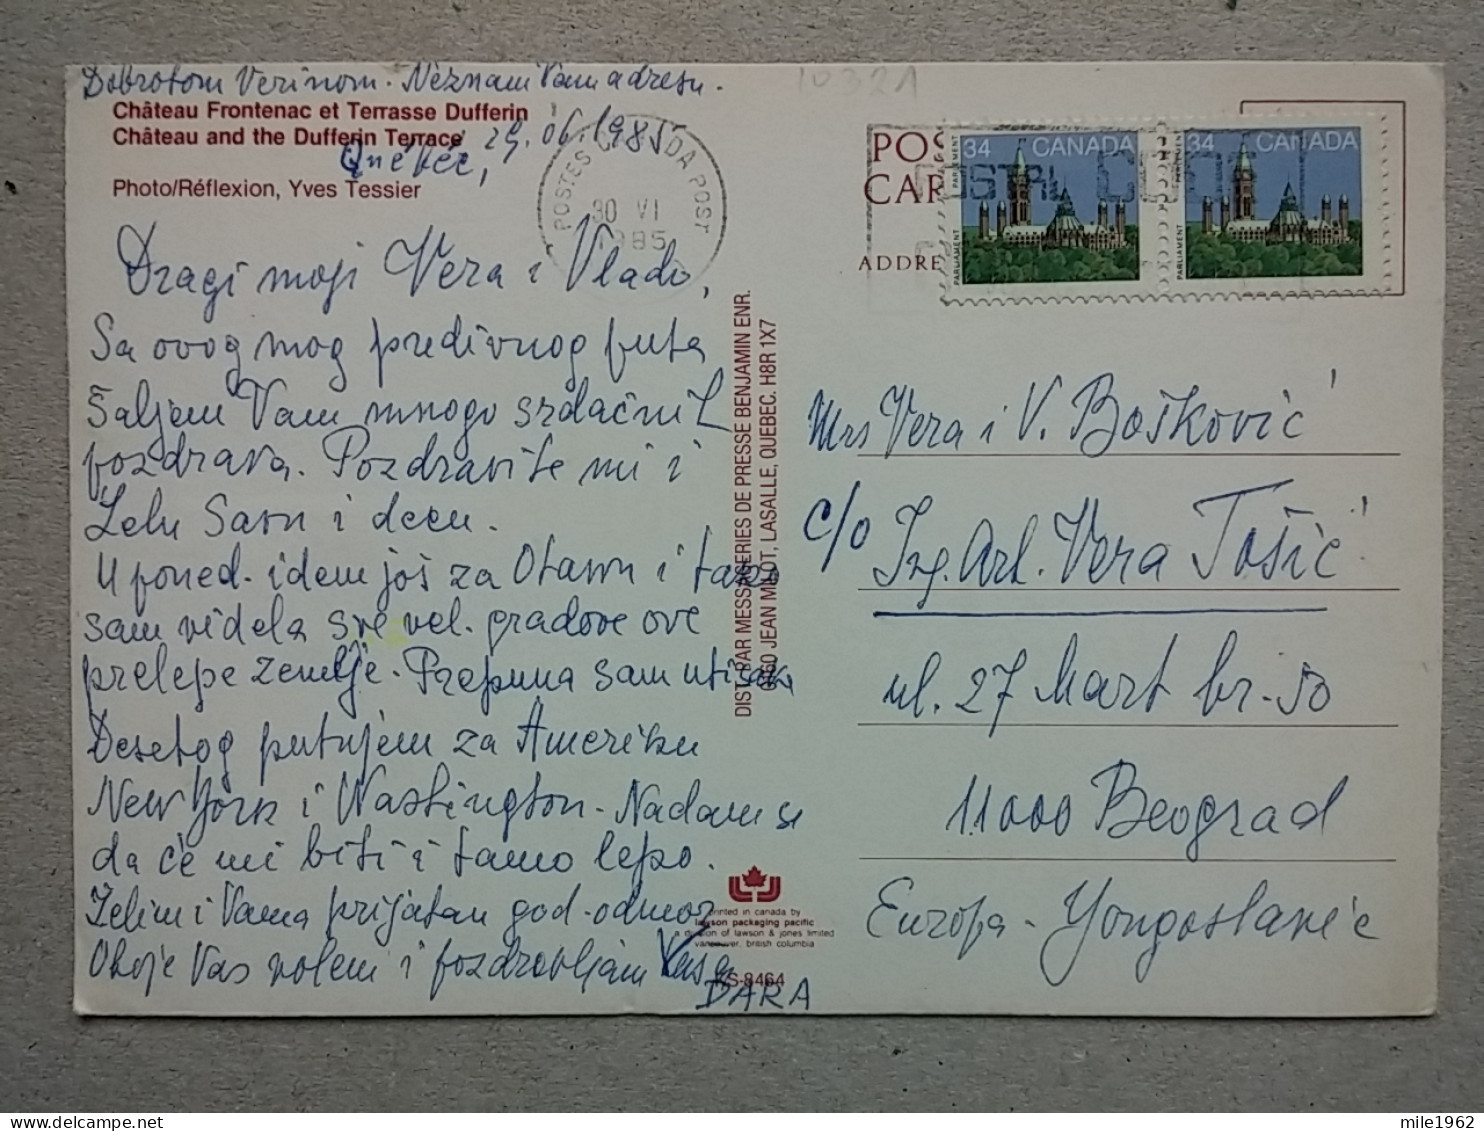 Dobrotom Verinom. Neznam Vam adresu.
Château Frontenac et Terrasse Dufferin
Château and the Dufferin Terrace
Quebec, 29.06.1985
Photo/Réflexion, Yves Tessier
POSTES CANADA POST
30 VI
1985
Dragi moji Vera i Vlado,
Sa ovog mog predivnog puta
Šaljem Vam mnogo srdačnih
pozdrava. Pozdravite mi i
Lelu Savu i decu.
U poned. idem još za Otavu i tako
sam videla sve vel. gradove ove
prelepe zemlje. Prepuna sam utisaka
Desetog putujem za Ameriku
New York i Washington. Nadam se
da će mi biti i tamo lepo.
Želim i Vama prijatan god. odmor
Oboje Vas volem i pozdravljam Vaša
DARA
DIST. PAR MESSAGERIES DE PRESSE BENJAMIN ENR.
JEAN MILOT, LASALLE, QUEBEC. H8R 1X7
printed in canada by
lawson packaging pacific
a division of lawson & jones limited
vancouver, british columbia
KS-8464
10321
POS
CAR
ADDRE
34 CANADA
PARLIAMENT PARLEMENT
34 CANADA
PARLIAMENT PARLEMENT
POSTAL CODE
Mrs Vera i V. Bošković
c/o Ing. Arh. Vera Tošić
ul. 27 Mart br. 50
11000 Beograd
Europa - Yougoslavie
mile1962